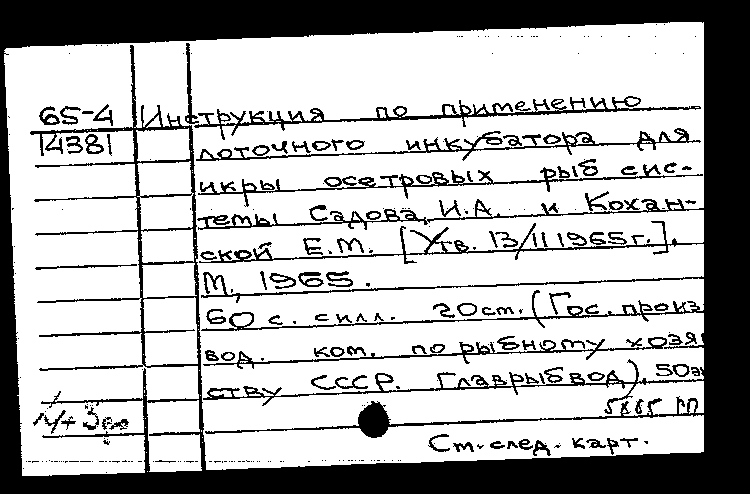 65-4 Инструкция по применению
14381 лоточного инкубатора для
икры осетровых рыб сис-
темы Садова, И.А. и Кохан-
ской Е.М. [Утв. 13/II 1965г.].
М., 1965.
60 с. с илл. 20 см. (Гос. произ
вод. ком. по рыбному хозя
ству СССР. Главрыбвод). 50э
Ст. след. карт.